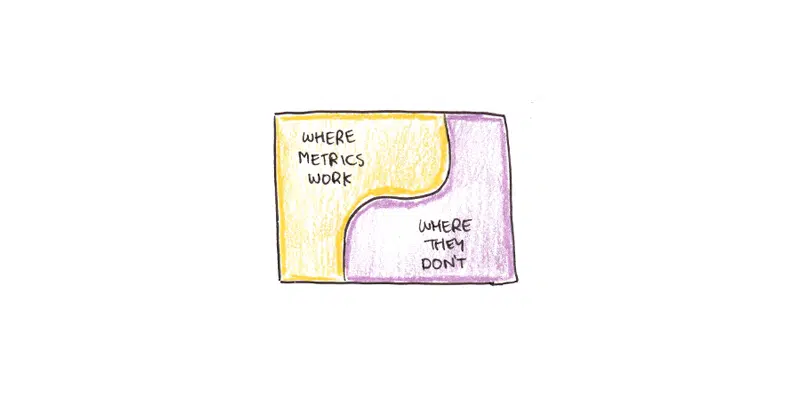 WHERE
METRICS
WORK
WHERE
THEY
DON'T